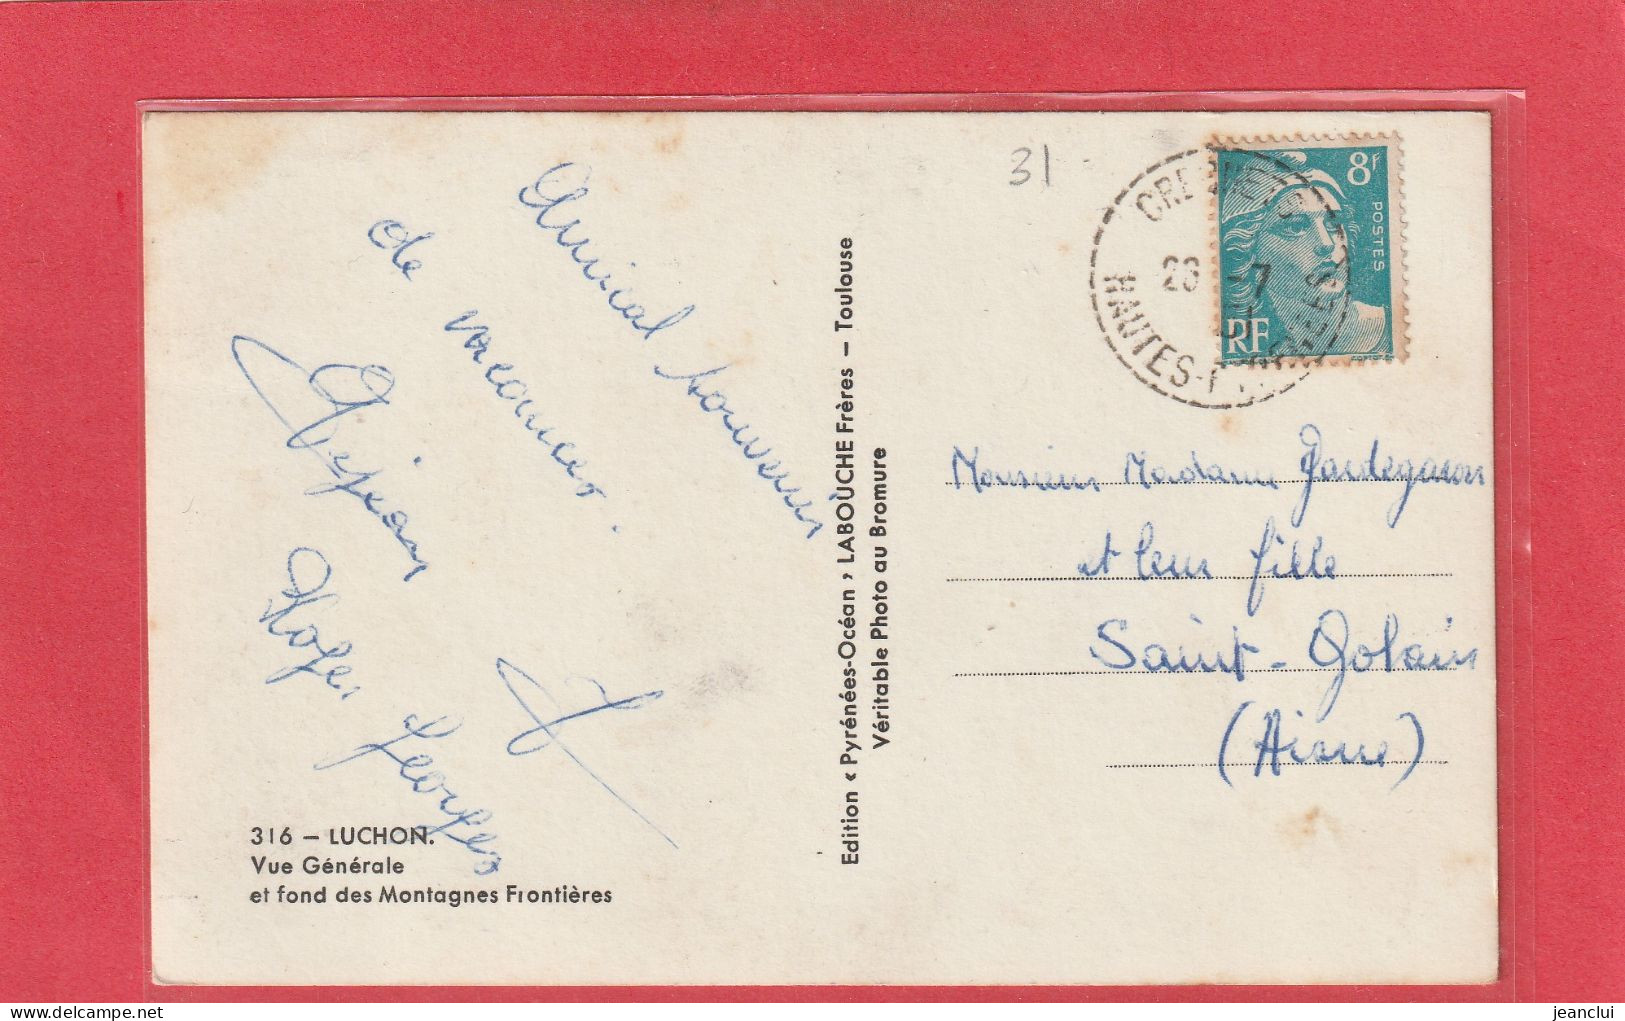 31
8F
POSTES
RF
HAUTES-
26 -7
Amical souvenir
de vacances.
Dejean
Roger Georges
Edition « Pyrénées-Océan » LABOUCHE Frères — Toulouse
Véritable Photo au Bromure
Monsieur Madame
et leur fille
Saint-Gobain
(Aisne)
316 — LUCHON.
Vue Générale
et fond des Montagnes Frontières
jeanclui